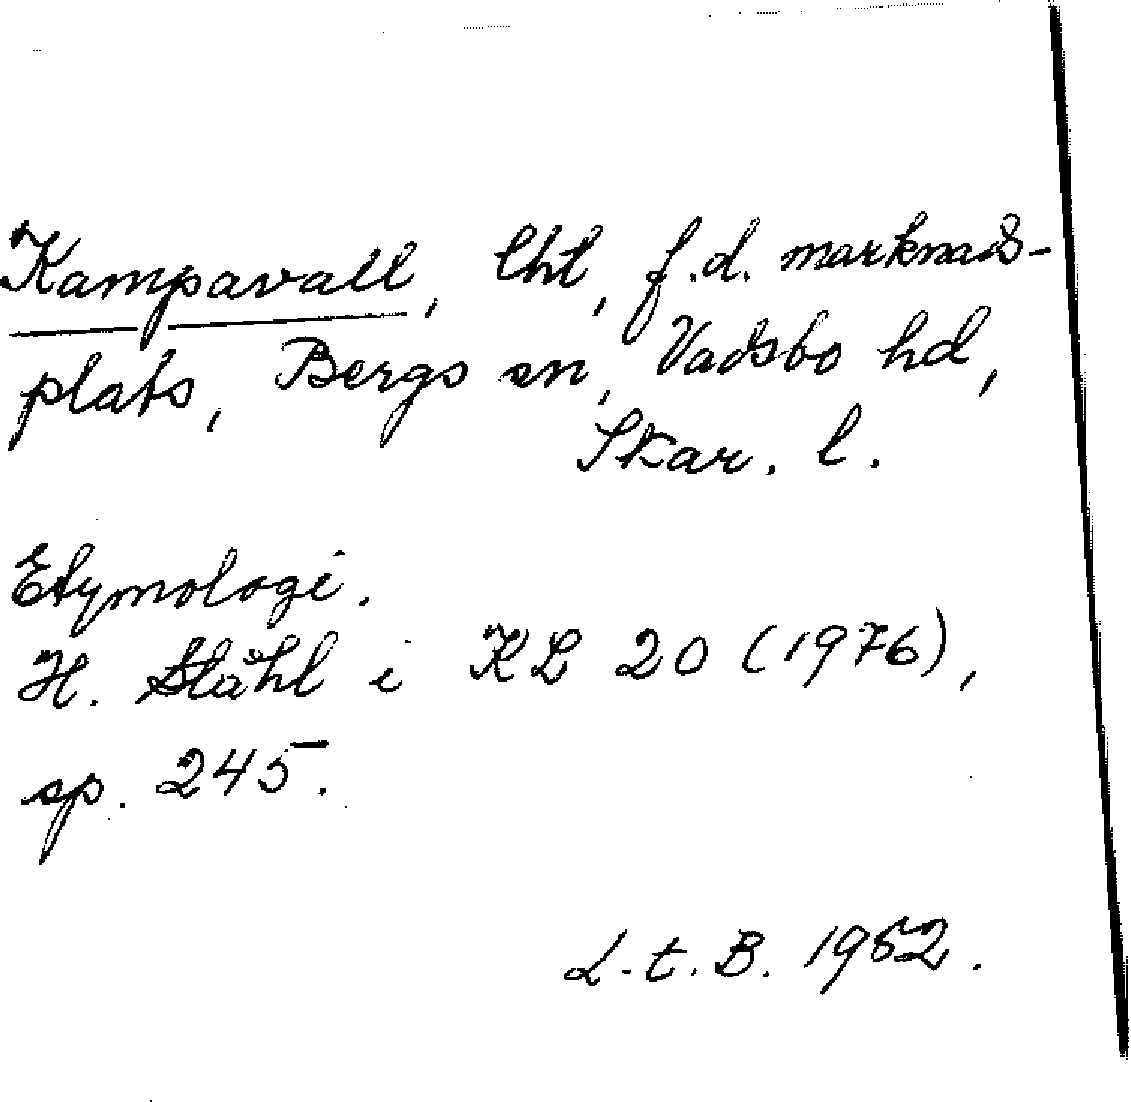 Kampavall, lht, f.d. marknads-
plats, Bergs sn, Vadsbo hd,
Skar. l.
Etymologi.
H. Ståhl i KL 20 (1976),
sp. 245.
L.t.B. 1952.